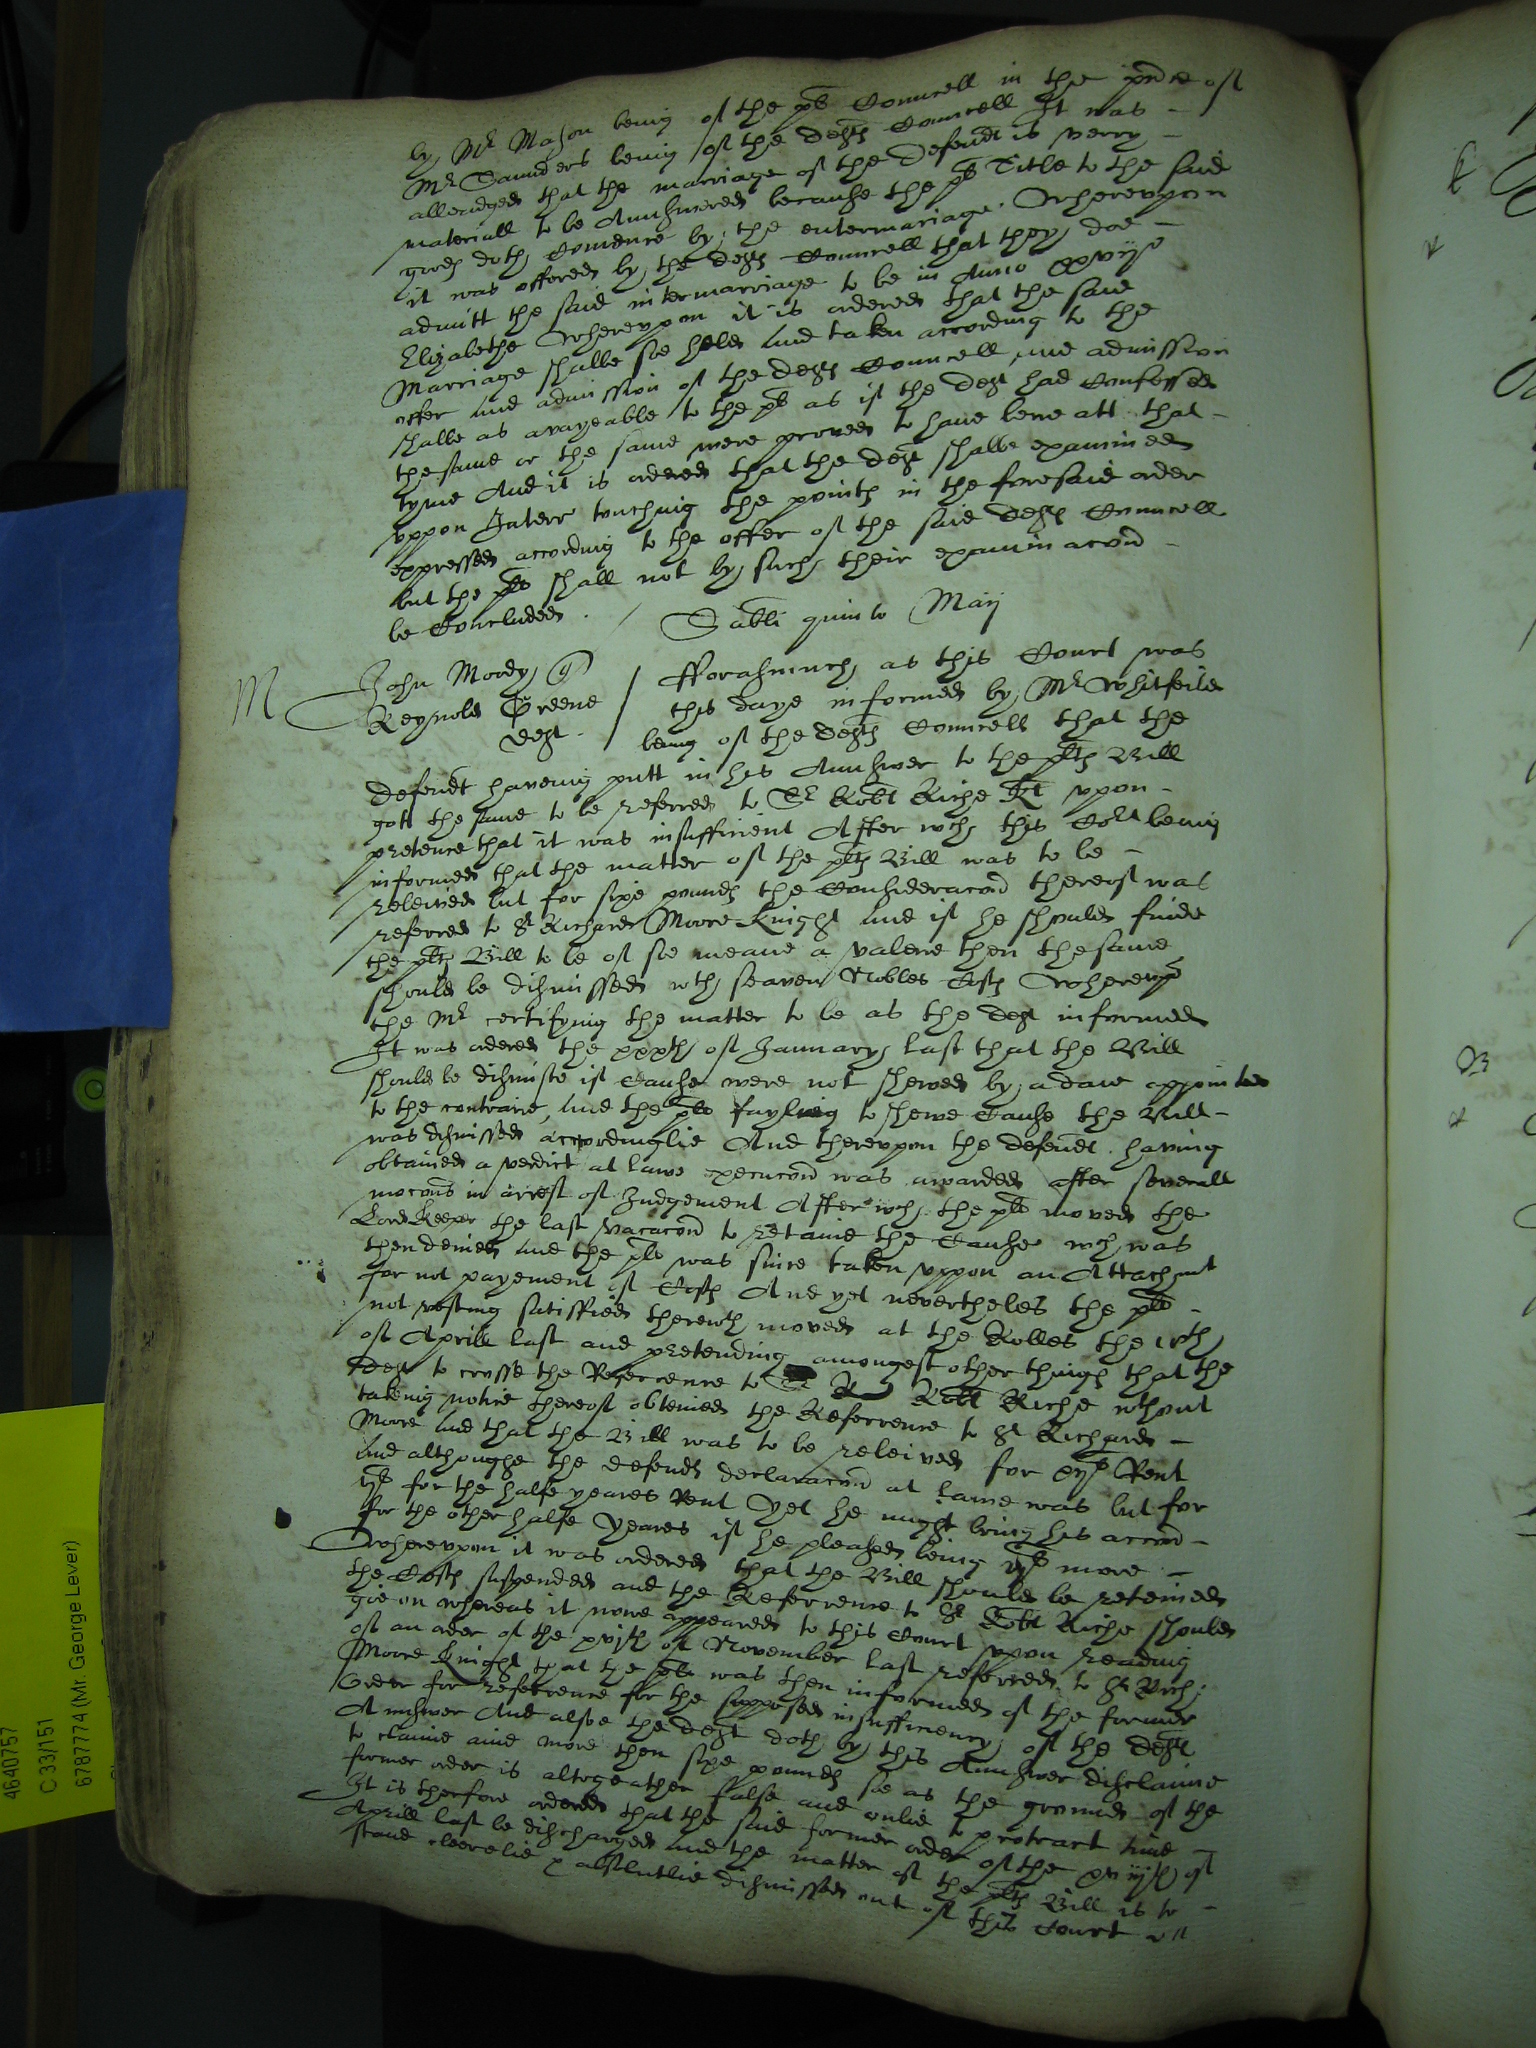 by Mr Mason being of the pls Councell in the prnce of
Mr Saunders being of the defts Councell It was -
alleadged that the marriage of the defendt is verry -
materiall to be Aunswered because the pls Title to the said
goods doth Comence by the entermariage. Wherevpon
it was offered by the defts Councell that they doe -
admitt the said intermarriage to be in Anno
Elizabethe Wherevpon it is ordered that the said
Marriage shalbe soe held and taken according to the
offer and admission of the defts Councell and admission
shalbe as avayeable to the pls as if the deft had Confessed
the same or the same were proved to have bene att that -
tyme And it is ordered that the deft shalbe examined
vppon Interr touching the pointes in the foresaid order
expressed according to the offer of the said defts Councell
but the pls shall not by such their examinacon -
be Concluded. /
Sabti quinto Maij
M John Moody
Reynold Greene
deft
fforasmuch as this Court was
this daye informed by Mr Whitfeild
being of the defts Councell that the
defendt haveing putt in his Aunswer to the pltes Bill
gott the same to be referred to Sr Robt Riche Kt vpon -
pretence that it was insufficient After wch this Cort being
informed that the matter of the pltes Bill was to be -
releived but for sixe poundes the Consideracon thereof was
referred to Sr Richard Moore Knight and if he should finde
the pltes Bill to be of soe meane a valewe then the same
should be dismissed wth seaven Nobles Costes Wherevpon
the Mr certifying the matter to be as the deft informed
It was ordered the xxxth of January last that the Bill
should be dismiste if Cause were not shewed by a daie appointed
to the contrarie, and the plt fayling to shewe Cause the Bill -
was dismissed accordinglie And therevpon the defendt having
obtained a verdict at lawe execucon was awarded after severall
mocons in arrest of Judgement After wch the plt moved the
Lord Keeper the last vacacon to retaine the Cause wch was
then denied and the plt was since taken vppon an Attachmt
for not payement of Costes And yet nevertheles the plt -
not resting satisffied therewth moved at the Rolles the
of Aprill last and pretending amongest other thinges that the
deft to crosse the Referrence to Sr Robt Riche wthout
takeing notice thereof obteined the Referrence to Sr Richard -
Moore and that the Bill was to be releived for Rent
and althoughe the defendts declaracon at Lawe was but for
for the halfe yeares Rent Yet he might bring his accon -
for the other halfe Yeares if he pleased being more -
Wherevpon it was ordered that the Bill should be reteined
the Costes suspended and the Referrence to Sr Robt Riche should
goe on whereas it nowe appeared to this Court vpon reading
of an order of the xvjth of November last referred to Sr Rich:
Moore Knight that the plt was then informed of the former
Order for referrence for the supposed insufficiency of the defts
Aunswer And alsoe the deft doth by this Aunswer disclaime
to claime anie more then sixe poundes soe as the ground of the
former order is altogeather false and onlie to protract time -
It is therfore ordered that the said former order of the xviijth of
Aprill last be discharged and the matter of the pltes Bill is to -
stand cleerelie & absolutlie dismissed out of this Court
4640757
C 33/151
6787774 (Mr. George Lever)